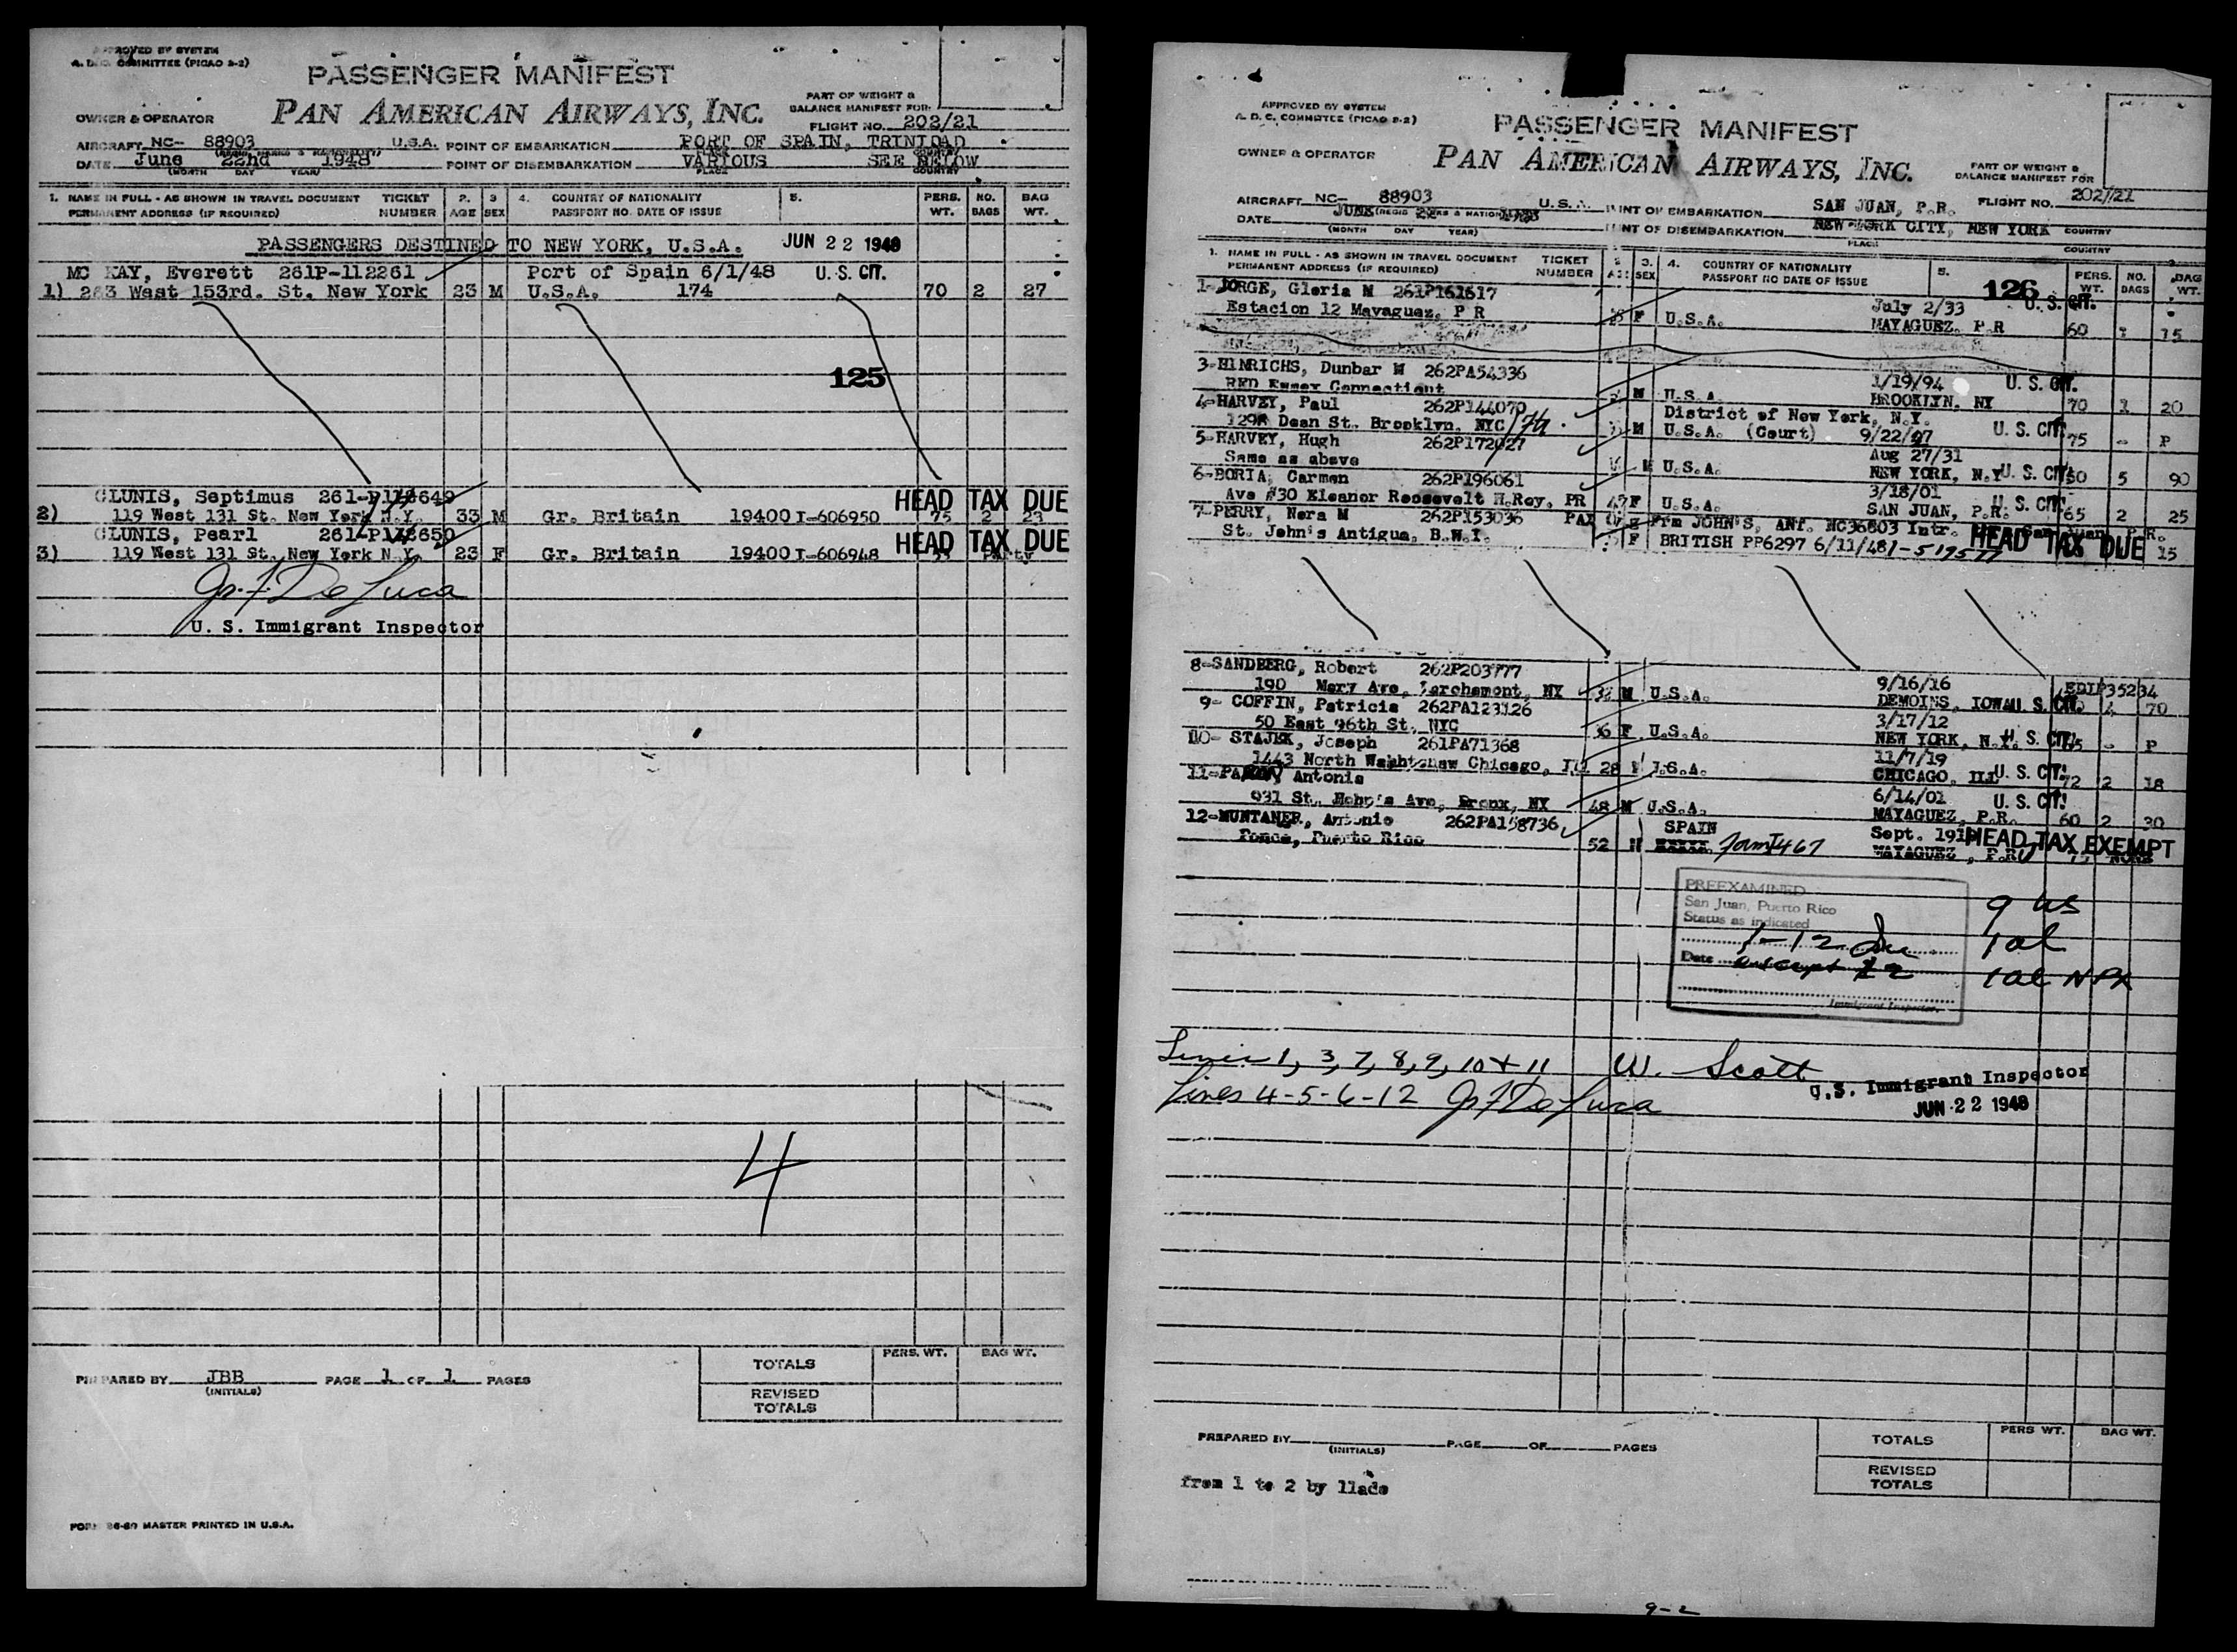 APPROVED BY SYSTEM
A. D. C. COMMITTEE (PICAO 2-2)
PASSENGER MANIFEST
PAN AMERICAN AIRWAYS, INC.
OWNER & OPERATOR
PART OF WEIGHT &
BALANCE MANIFEST FOR
FLIGHT NO. 202/21
AIRCRAFT NC- 88903 U.S.A. POINT OF EMBARKATION PORT OF SPAIN, TRINIDAD
DATE June 22nd 1948 POINT OF DISEMBARKATION VARIOUS SEE BELOW
(MONTH DAY YEAR) PLACE COUNTRY
1. NAME IN FULL - AS SHOWN IN TRAVEL DOCUMENT TICKET 2. 3 4. COUNTRY OF NATIONALITY 5. PERS. NO. BAG
PERMANENT ADDRESS (IF REQUIRED) NUMBER AGE SEX PASSPORT NO. DATE OF ISSUE WT. BAGS WT.
PASSENGERS DESTINED TO NEW YORK, U.S.A. JUN 22 1948
MC KAY, Everett 261P-112261 Port of Spain 6/1/48 U.S. CIT.
1) 263 West 153rd. St. New York 23 M U.S.A. 174 70 2 27
125
CLUNIS, Septimus HEAD TAX DUE
2) 119 West 131 St. New York N.Y. 33 M Gr. Britain 19400 I-606950 75 2 23
CLUNIS, Pearl HEAD TAX DUE
3) 119 West 131 St. New York N.Y. 23 F Gr. Britain 19400 I-606948 Party
Gr. F. De Luca
U. S. Immigrant Inspector
4
PREPARED BY JBB PAGE 1 OF 1 PAGES
(INITIALS)
PERS. WT. BAG WT.
TOTALS
REVISED
TOTALS
FORM 86-60 MASTER PRINTED IN U.S.A.
APPROVED BY SYSTEM
A. D. C. COMMITTEE (PICAO 2-2)
PASSENGER MANIFEST
PAN AMERICAN AIRWAYS, INC.
OWNER & OPERATOR
PART OF WEIGHT &
BALANCE MANIFEST FOR
FLIGHT NO. 202/21
AIRCRAFT NC- 88903 U.S.A. POINT OF EMBARKATION SAN JUAN, P.R.
DATE JUNE POINT OF DISEMBARKATION NEW YORK CITY, NEW YORK
(MONTH DAY YEAR) PLACE COUNTRY
1. NAME IN FULL - AS SHOWN IN TRAVEL DOCUMENT TICKET 3. 4. COUNTRY OF NATIONALITY 5. PERS. NO. BAG
PERMANENT ADDRESS (IF REQUIRED) NUMBER SEX PASSPORT NO DATE OF ISSUE WT. BAGS WT.
126
1-JORGE, Gloria M 261P161617 July 2/33 U.S. CIT.
Estacion 12 Mayaguez, P R F U.S.A. MAYAGUEZ, P.R 60 1 15
3-HINRICHS, Dunbar M 262PA54336 1/19/94 U.S. CIT.
RED Essex Connecticut M U.S.A. BROOKLYN, NY 70 1 20
4-HARVEY, Paul 262P144070 District of New York, N.Y.
Dean St. Brooklyn, NYC M U.S.A. (Court) 9/22/07 U.S. CIT. 75 - P
5-HARVEY, Hugh 262P172027 Aug 27/31
Same as above M U.S.A. NEW YORK, N.Y. U.S. CIT. 50 5 90
6-BORIA, Carmen 262P196061 3/18/01
Ave #30 Eleanor Roosevelt H.Rey, PR 47 F U.S.A. SAN JUAN, P.R. U.S. CIT. 65 2 25
7-PERRY, Nora M 262P153036 Frm JOHN'S, ANT. NC36803 Intr. San Juan P.R.
St. John's Antigua, B.W.I. F BRITISH PP6297 6/11/48 HEAD TAX DUE 15
8-SANDBERG, Robert 262P203777 9/16/16 EDIP35234
190 Mary Ave, Larchemont, NY M U.S.A. DEMOINS, IOWA U.S. CIT. 70
9- COFFIN, Patricia 262PA123126 3/17/12
50 East 96th St, NYC 36 F U.S.A. NEW YORK, N.Y. U.S. CIT. - P
10- STAJEK, Joseph 261PA71368 11/7/19
1443 North Chicago, Ill 28 U.S.A. CHICAGO, ILL U.S. CIT. 72 2 18
11- Antonia 6/14/01 U.S. CIT.
931 St. Ave, Bronx, NY 48 M U.S.A. MAYAGUEZ, P.R. 60 2 30
12-MUNTANER, Antonio 262PA158736 SPAIN Sept. HEAD TAX EXEMPT
Ponce, Puerto Rico 52 M Form I467 MAYAGUEZ, P.R.
PREEXAMINED
San Juan, Puerto Rico
Status as indicated
1-12
Date except 12
Immigrant Inspector.
9 us
1 al
1 al
Lines 1, 3, 7, 8, 9, 10 + 11 W. Scott
U.S. Immigrant Inspector
Lines 4-5-6-12 Gr F De Luca
JUN 22 1948
PREPARED BY PAGE OF PAGES
(INITIALS)
PERS WT. BAG WT.
TOTALS
REVISED
TOTALS
from 1 to 2 by llade
9-2